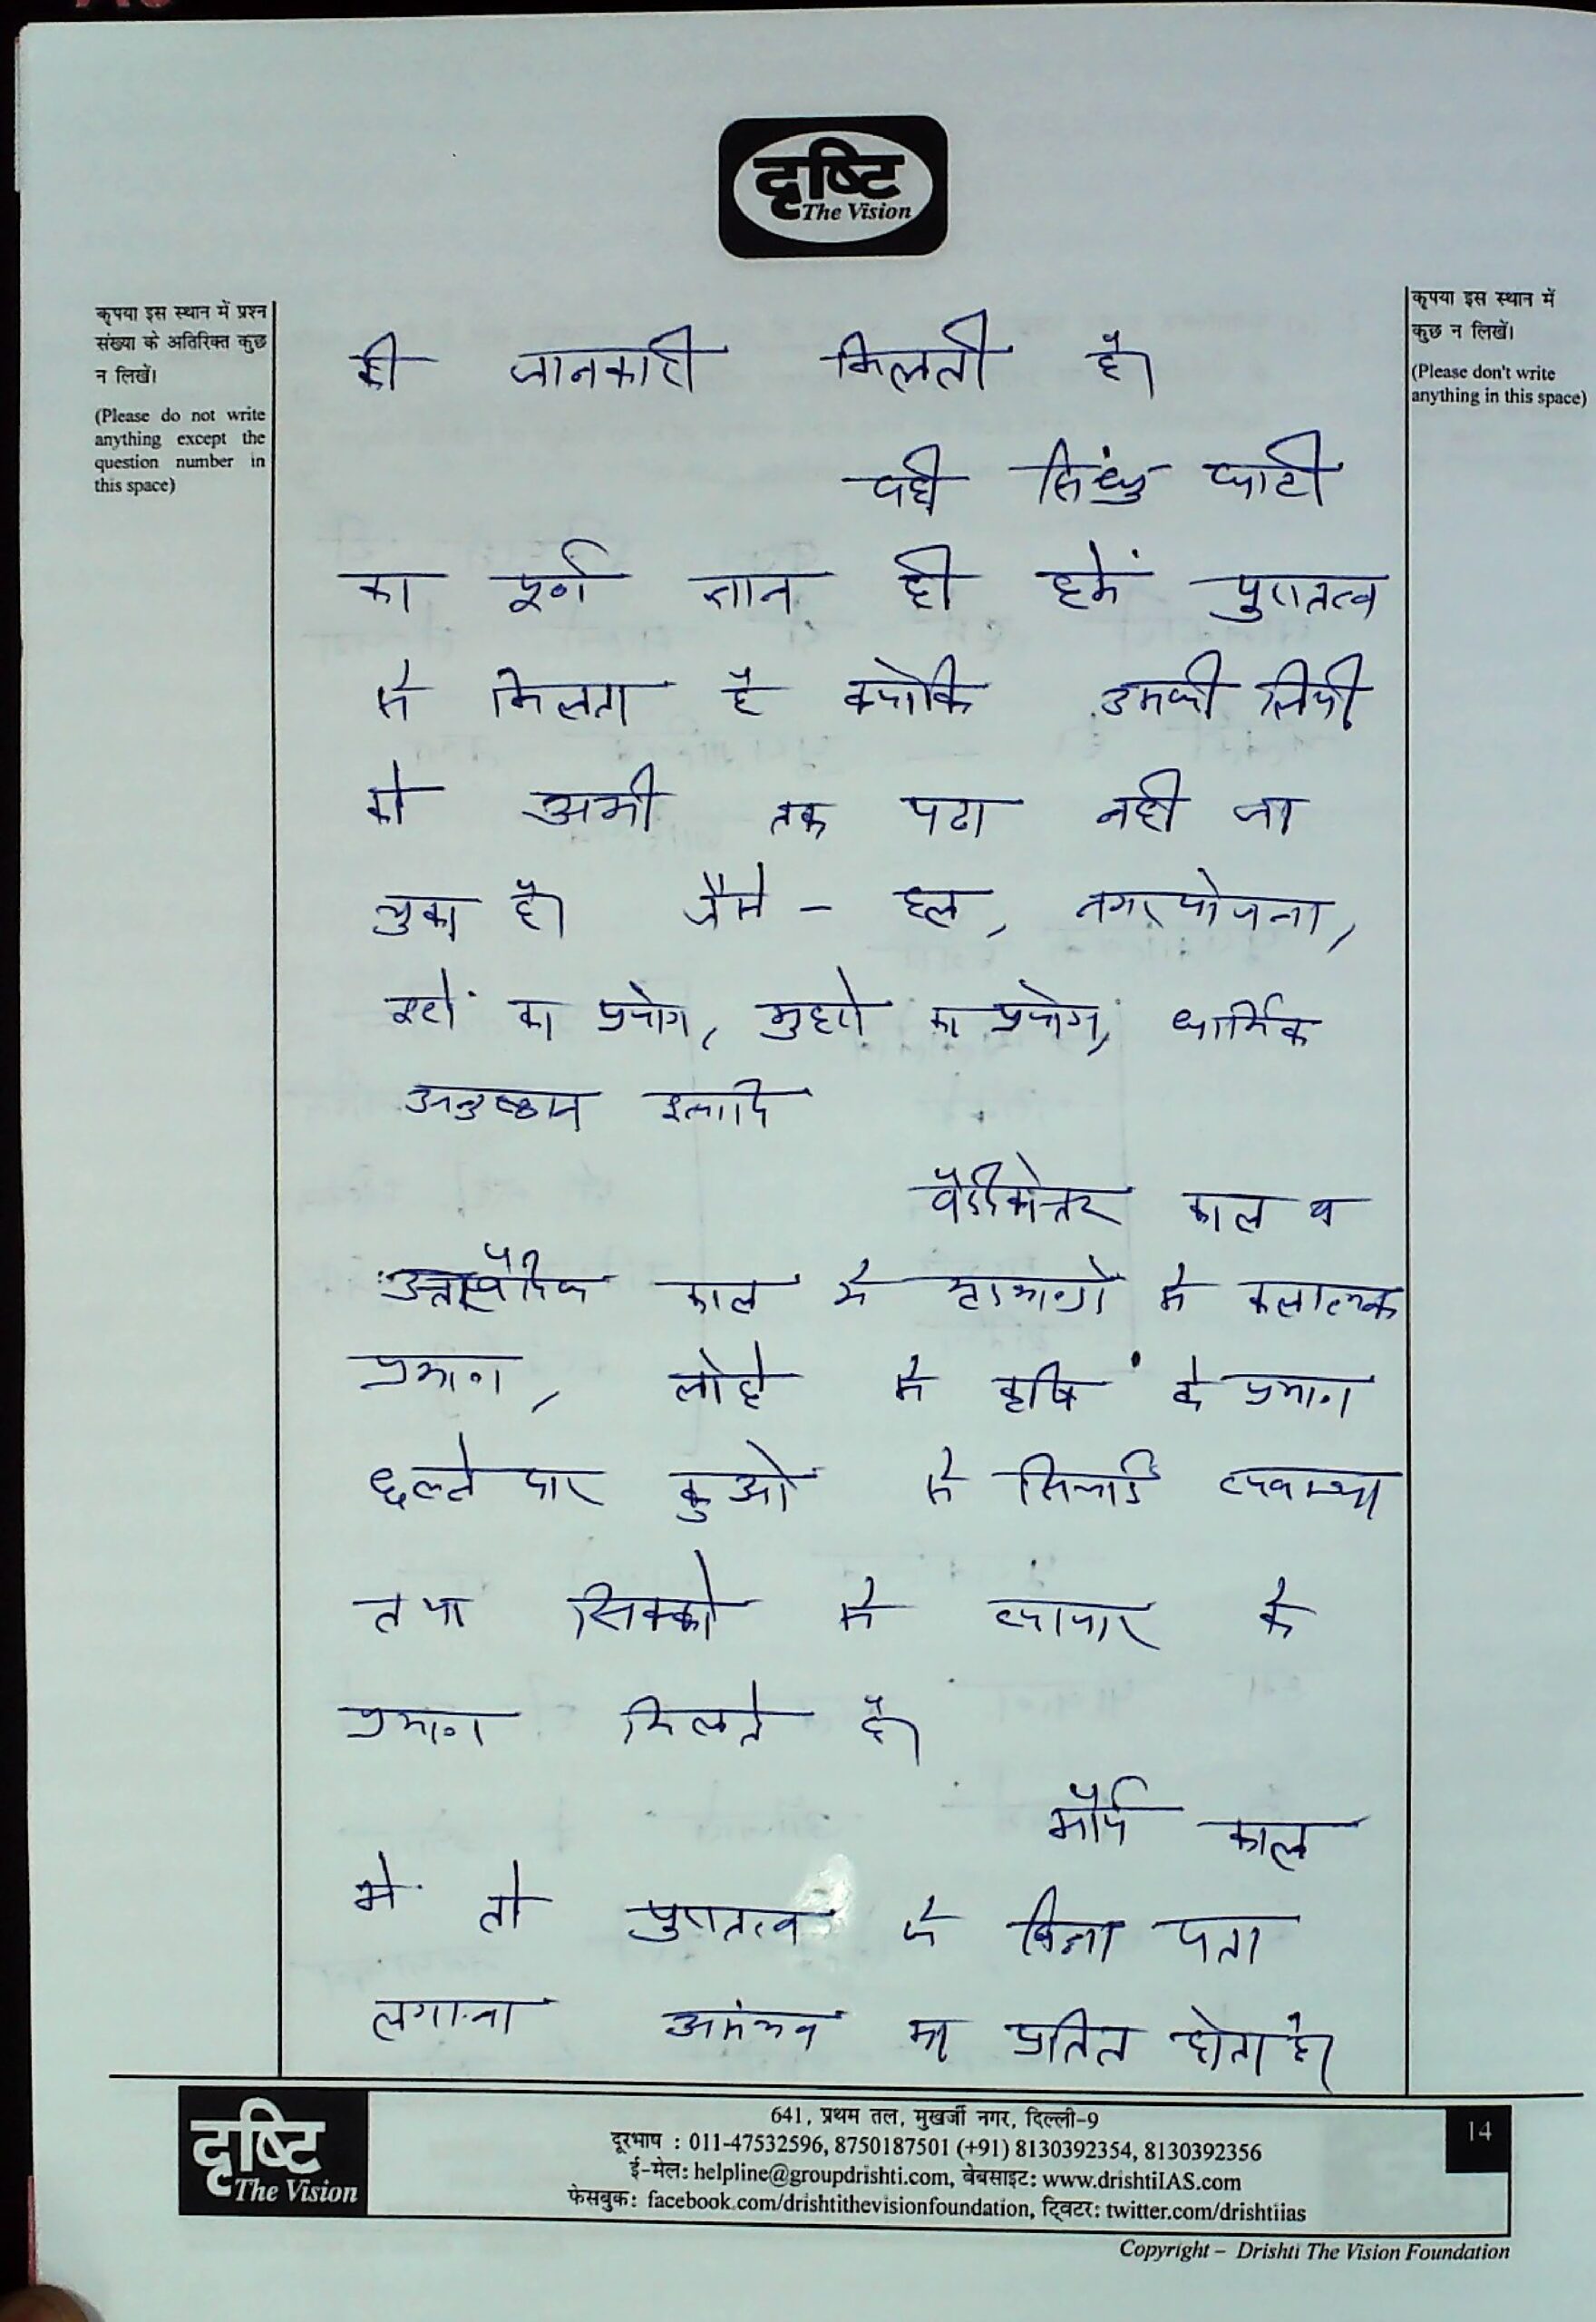 दृष्टि
The Vision
कृपया इस स्थान में प्रश्न
संख्या के अतिरिक्त कुछ
न लिखें।
(Please do not write
anything except the
question number in
this space)
कृपया इस स्थान में
कुछ न लिखें।
(Please don't write
anything in this space)
की जानकारी मिलती है।
वही सिंधु घाटी
का पूर्ण ज्ञान ही हमें पुरातत्व
से मिलता है क्योकि उसकी लिपी
को अभी तक पढा नही जा
चुका है। जैसे - हल, नगर योजना,
इटों का प्रयोग, मुहरो का प्रयोग, धार्मिक
अनुष्ठान इत्यादि
काल व
उत्तरवैदिक काल मे से कलात्मक
प्रमाण, लोहे से कृषि के प्रमाण
छल्लेदार कुओ से सिचाई व्यवस्था
तथा सिक्को से व्यापार के
प्रमाण मिलते है।
मौर्य काल
मे तो पुरातत्व के बिना पता
लगाना असंभव सा प्रतित होता है।
दृष्टि
The Vision
641, प्रथम तल, मुखर्जी नगर, दिल्ली-9
दूरभाष : 011-47532596, 8750187501 (+91) 8130392354, 8130392356
ई-मेल: helpline@groupdrishti.com, वेबसाइट: www.drishtiIAS.com
फेसबुक: facebook.com/drishtithevisionfoundation, ट्विटर: twitter.com/drishtiias
14
Copyright – Drishti The Vision Foundation